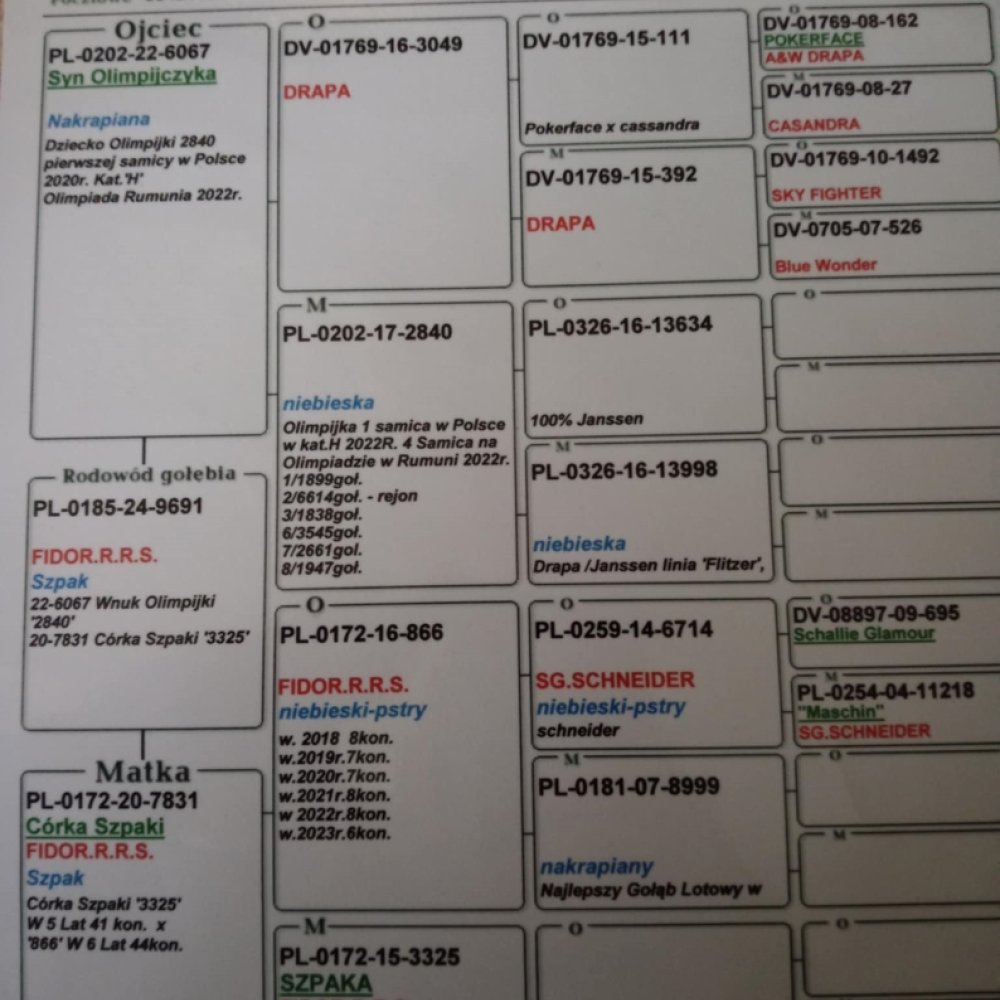 Ojciec
PL-0202-22-6067
Syn Olimpijczyka
Nakrapiana
Dziecko Olimpijki 2840
pierwszej samicy w Polsce
2020r. Kat.'H'
Olimpiada Rumunia 2022r.
Rodowód gołębia
PL-0185-24-9691
FIDOR.R.R.S.
Szpak
22-6067 Wnuk Olimpijki
'2840'
20-7831 Córka Szpaki '3325'
Matka
PL-0172-20-7831
Córka Szpaki
FIDOR.R.R.S.
Szpak
Córka Szpaki '3325'
W 5 Lat 41 kon. x
'866' W 6 Lat 44kon.
O
DV-01769-16-3049
DRAPA
M
PL-0202-17-2840
niebieska
Olimpijka 1 samica w Polsce
w kat.H 2022R. 4 Samica na
Olimpiadzie w Rumuni 2022r.
1/1899goł.
2/6614goł. - rejon
3/1838goł.
6/3545goł.
7/2661goł.
8/1947goł.
O
PL-0172-16-866
FIDOR.R.R.S.
niebieski-pstry
w. 2018 8kon.
w.2019r.7kon.
w.2020r.7kon.
w.2021r.8kon.
w 2022r.8kon.
w.2023r.6kon.
M
PL-0172-15-3325
SZPAKA
O
DV-01769-15-111
Pokerface x cassandra
M
DV-01769-15-392
DRAPA
O
PL-0326-16-13634
100% Janssen
M
PL-0326-16-13998
niebieska
Drapa /Janssen linia 'Flitzer',
O
PL-0259-14-6714
SG.SCHNEIDER
niebieski-pstry
schneider
M
PL-0181-07-8999
nakrapiany
Najlepszy Gołąb Lotowy w
O
O
DV-01769-08-162
POKERFACE
A&W DRAPA
M
DV-01769-08-27
CASANDRA
O
DV-01769-10-1492
SKY FIGHTER
M
DV-0705-07-526
Blue Wonder
O
M
O
M
O
DV-08897-09-695
Schallie Glamour
M
PL-0254-04-11218
"Maschin"
SG.SCHNEIDER
O
M
O